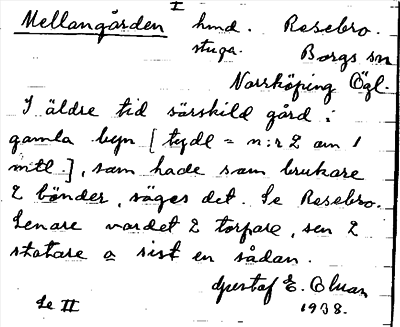 I
Mellangården hmd. Resebro.
stuga. Borgs sn
Norrköping Ögl.
I äldre tid särskild gård i
gamla byn [tydl = n:r 2 om 1
mtl.], som hade som brukare
2 bönder, säges det. Se Resebro.
Senare vardet 2 torpare, sen 2
statare o sist en sådan.
Gustaf E.
Se II 1938.